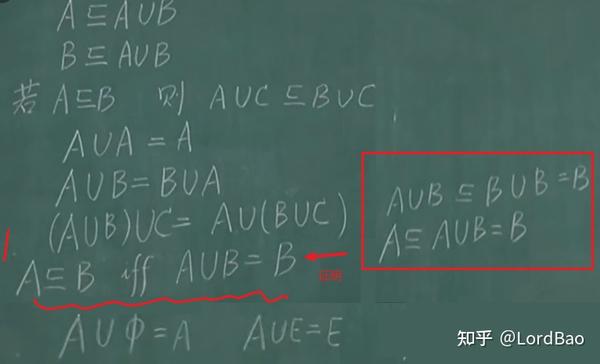 A ⊆ A∪B
B ⊆ A∪B
若 A⊆B 则 A∪C ⊆ B∪C
A∪A = A
A∪B = B∪A
(A∪B)∪C = A∪(B∪C)
A⊆B iff A∪B = B
证明
A∪B ⊆ B∪B = B
A⊆ A∪B = B
A∪Φ = A A∪E = E
知乎 @LordBao